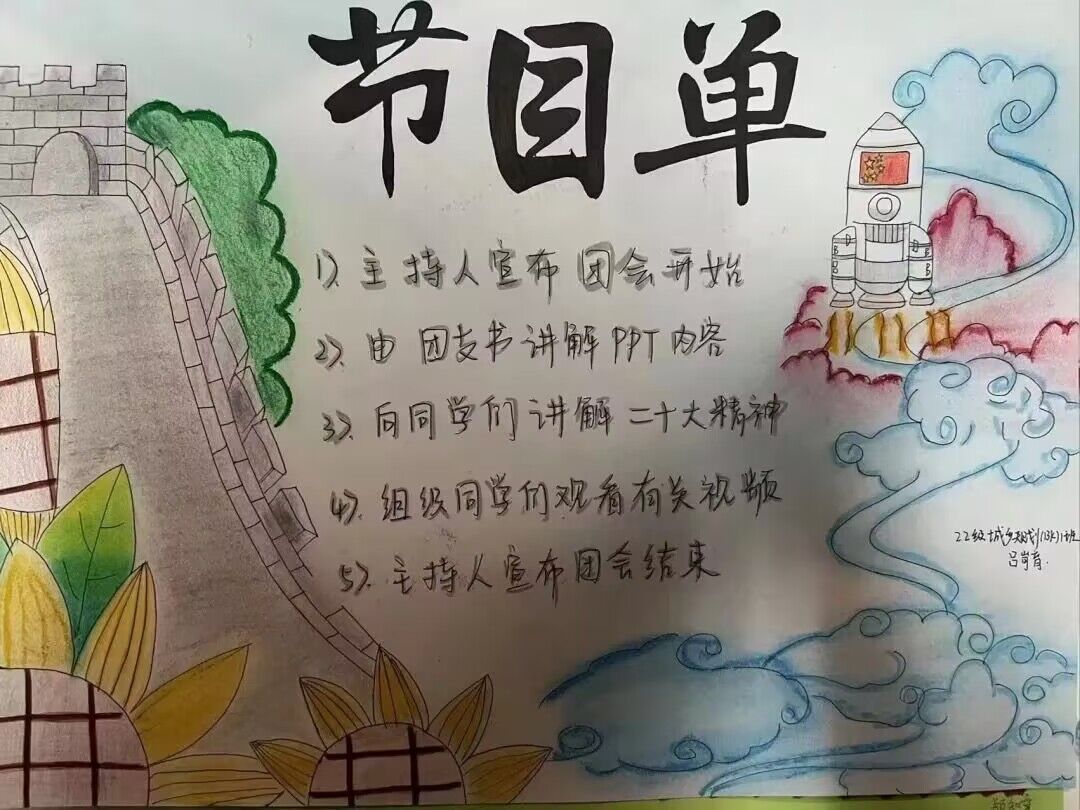 节目单
1)、主持人宣布团会开始
2)、由团支书讲解PPT内容
3)、向同学们讲解二十大精神
4)、组级同学们观看有关视频
5)、主持人宣布团会结束
22级城乡规划(1班)1班